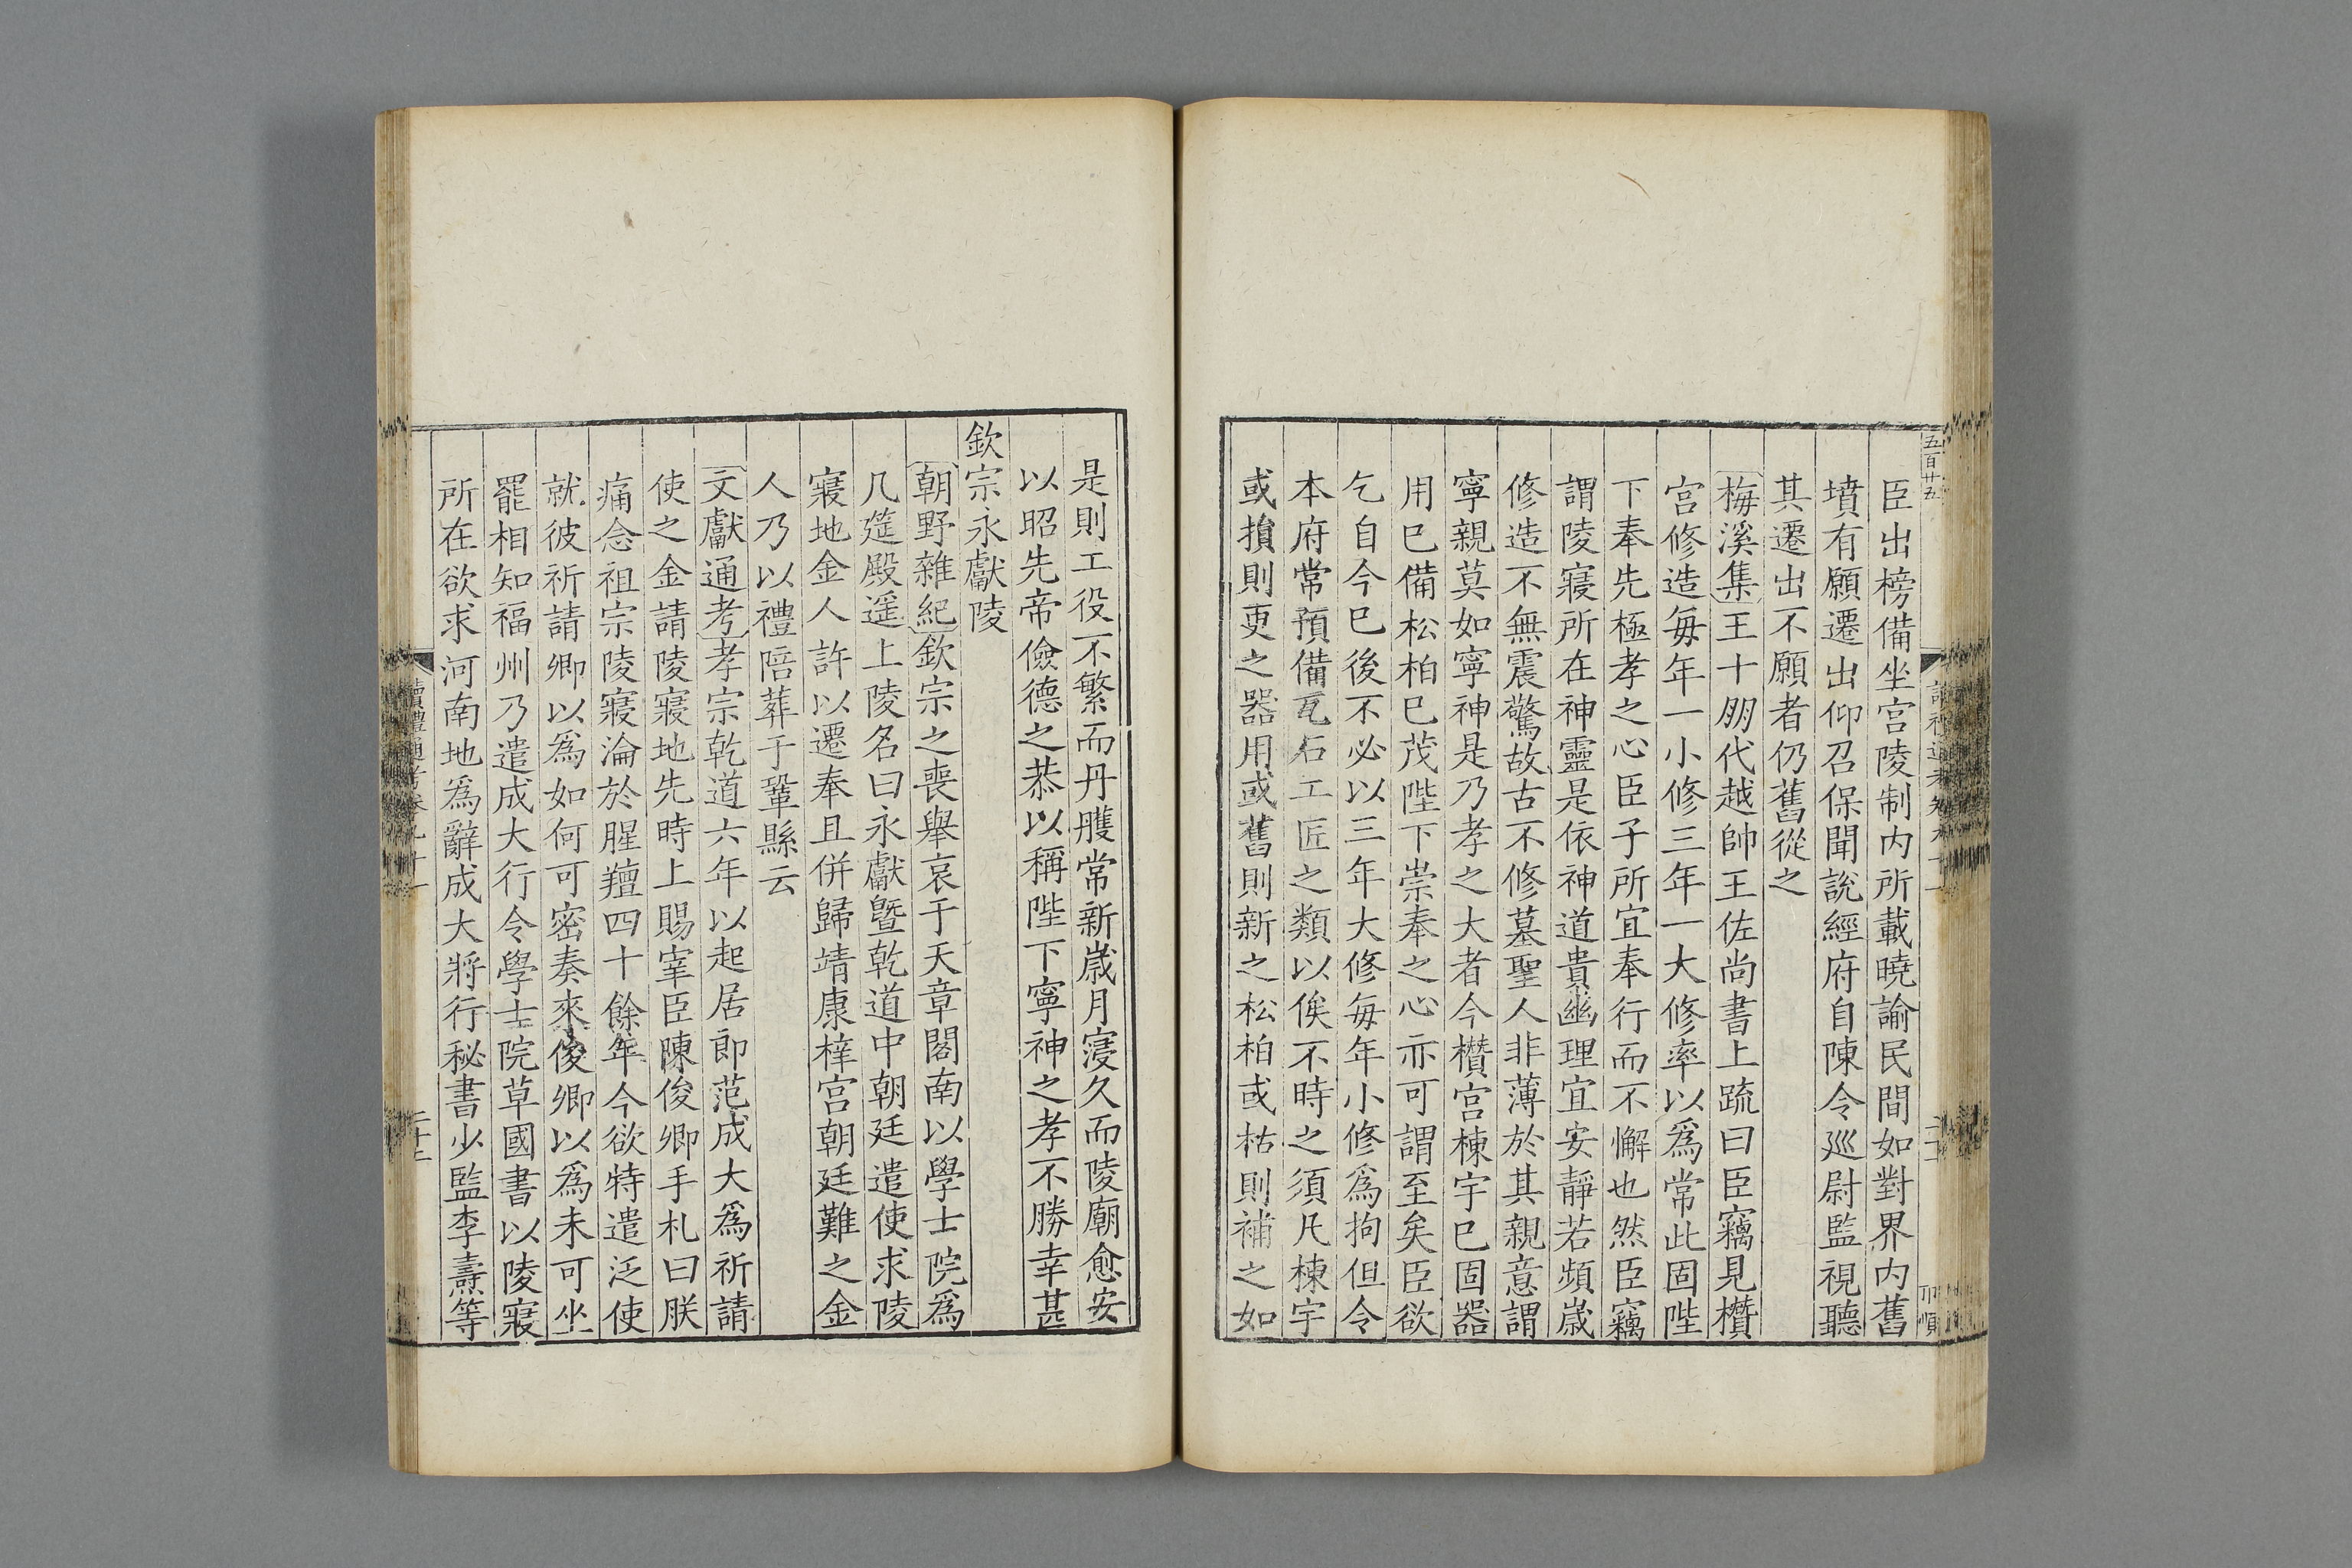 五百廿五
臣出榜備坐宮陵制内所載曉諭民間如對界内舊
墳有願遷出仰召保聞說經府自陳令廵尉監視聽
其遷出不願者仍舊從之
梅溪集王十朋代越帥王佐尚書上疏曰臣竊見欑
宮修造毎年一小修三年一大修率以爲常此固陛
下奉先極孝之心臣子所宜奉行而不懈也然臣竊
謂陵寢所在神靈是依神道貴幽理宜安靜若頻嵗
修造不無震驚故古不修墓聖人非薄於其親意謂
寧親莫如寧神是乃孝之大者今欑宮棟宇已固器
用已備松柏已茂陛下崇奉之心亦可謂至矣臣欲
乞自今已後不必以三年大修毎年小修爲拘但令
本府常預備瓦石工匠之類以俟不時之須凡棟宇
或損則更之器用或舊則新之松柏或枯則補之如
是則工役不繁而丹雘常新嵗月寖久而陵廟愈安
以昭先帝儉德之恭以稱陛下寧神之孝不勝幸甚
欽宗永獻陵
朝野雜紀欽宗之喪舉哀于天章閣南以學士院爲
几筵殿遥上陵名曰永獻曁乾道中朝廷遣使求陵
寢地金人許以遷奉且併歸靖康梓宮朝廷難之金
人乃以禮陪葬于鞏縣云
文獻通考孝宗乾道六年以起居郎范成大爲祈請
使之金請陵寢地先時上賜宰臣陳俊卿手札曰朕
痛念祖宗陵寢淪於腥羶四十餘年今欲特遣泛使
就彼祈請卿以爲如何可密奏來俊卿以爲未可坐
罷相知福州乃遣成大行令學士院草國書以陵寢
所在欲求河南地爲辭成大將行秘書少監李燾等
讀禮通考卷九十一